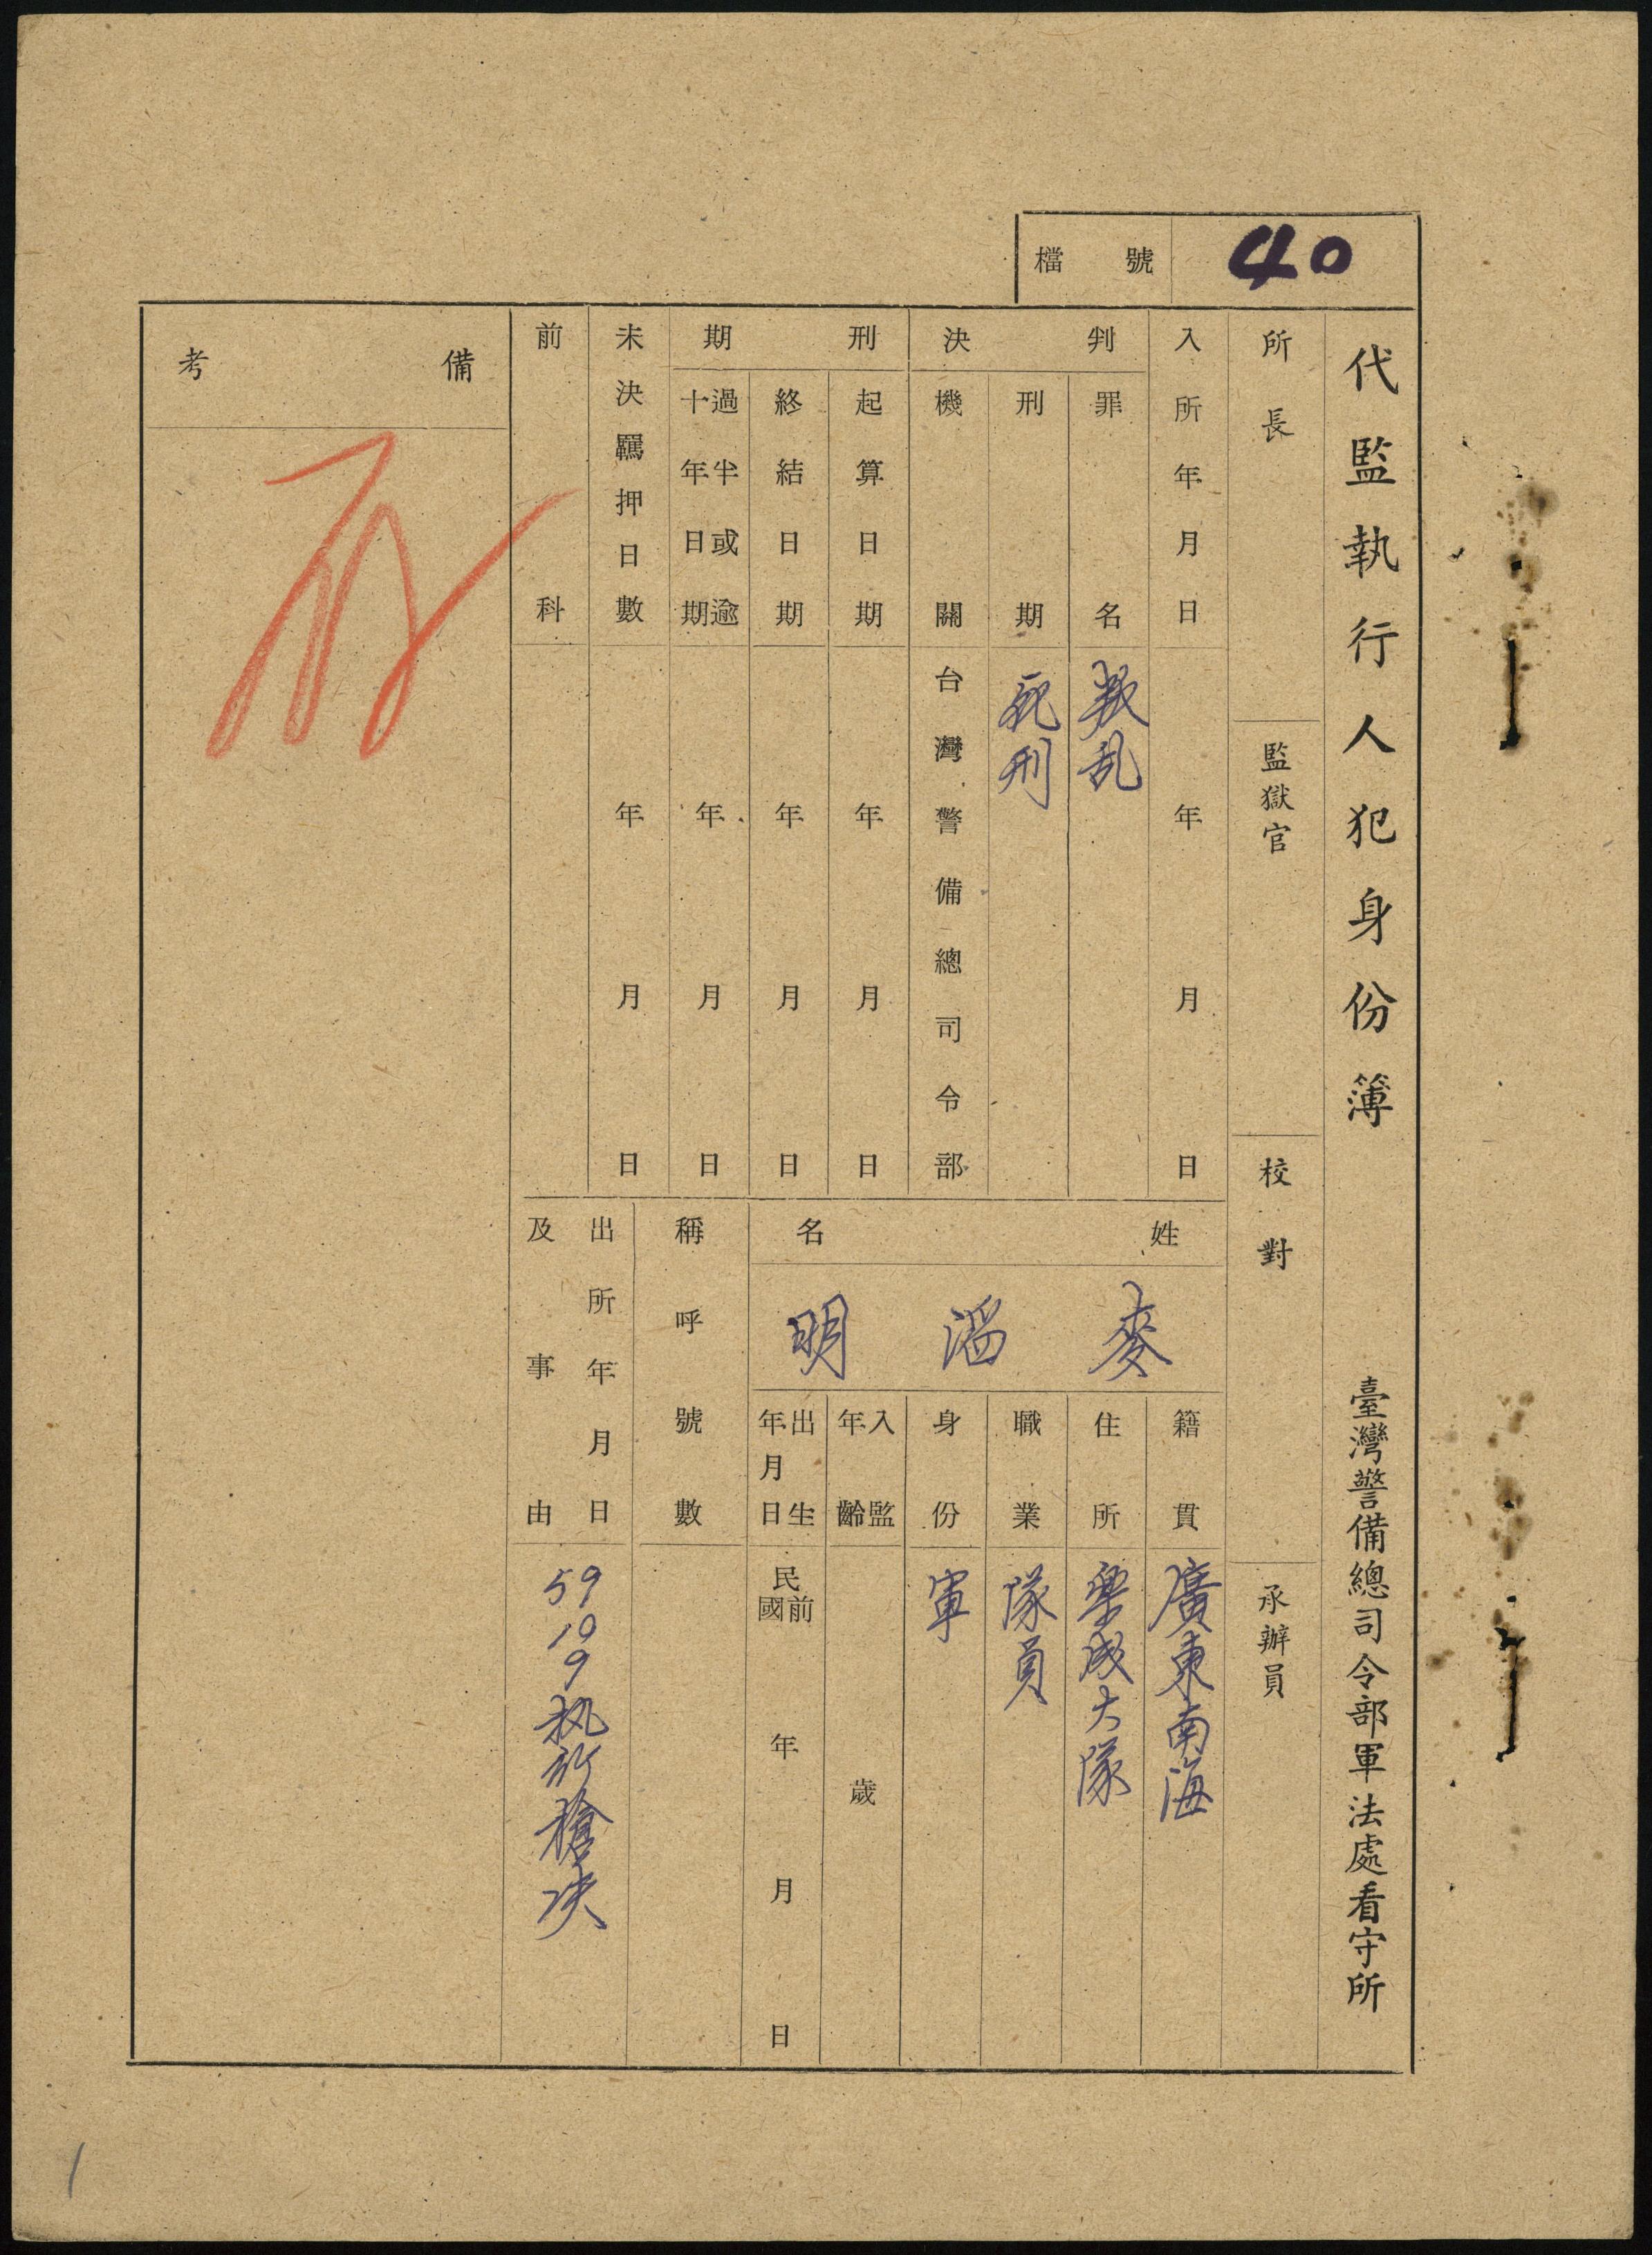 檔號 40
代監執行人犯身份簿 臺灣警備總司令部軍法處看守所
所長 監獄官 校對 承辦員
入所年月日 年 月 日
判決
罪名 叛乱
刑期 死刑
機關 台灣警備總司令部
刑期
起算日期 年 月 日
終結日期 年 月 日
過半或逾十年日期 年 月 日
未決羈押日數 年 月 日
前科
姓名
麥滔明
籍貫 廣東南海
住所 樂成大隊
職業 隊員
身份 軍
入監年齡 歲
出生年月日 民國前 年 月 日
稱呼號數
出所年月日及事由 59 10 9 执行槍决
備考
1